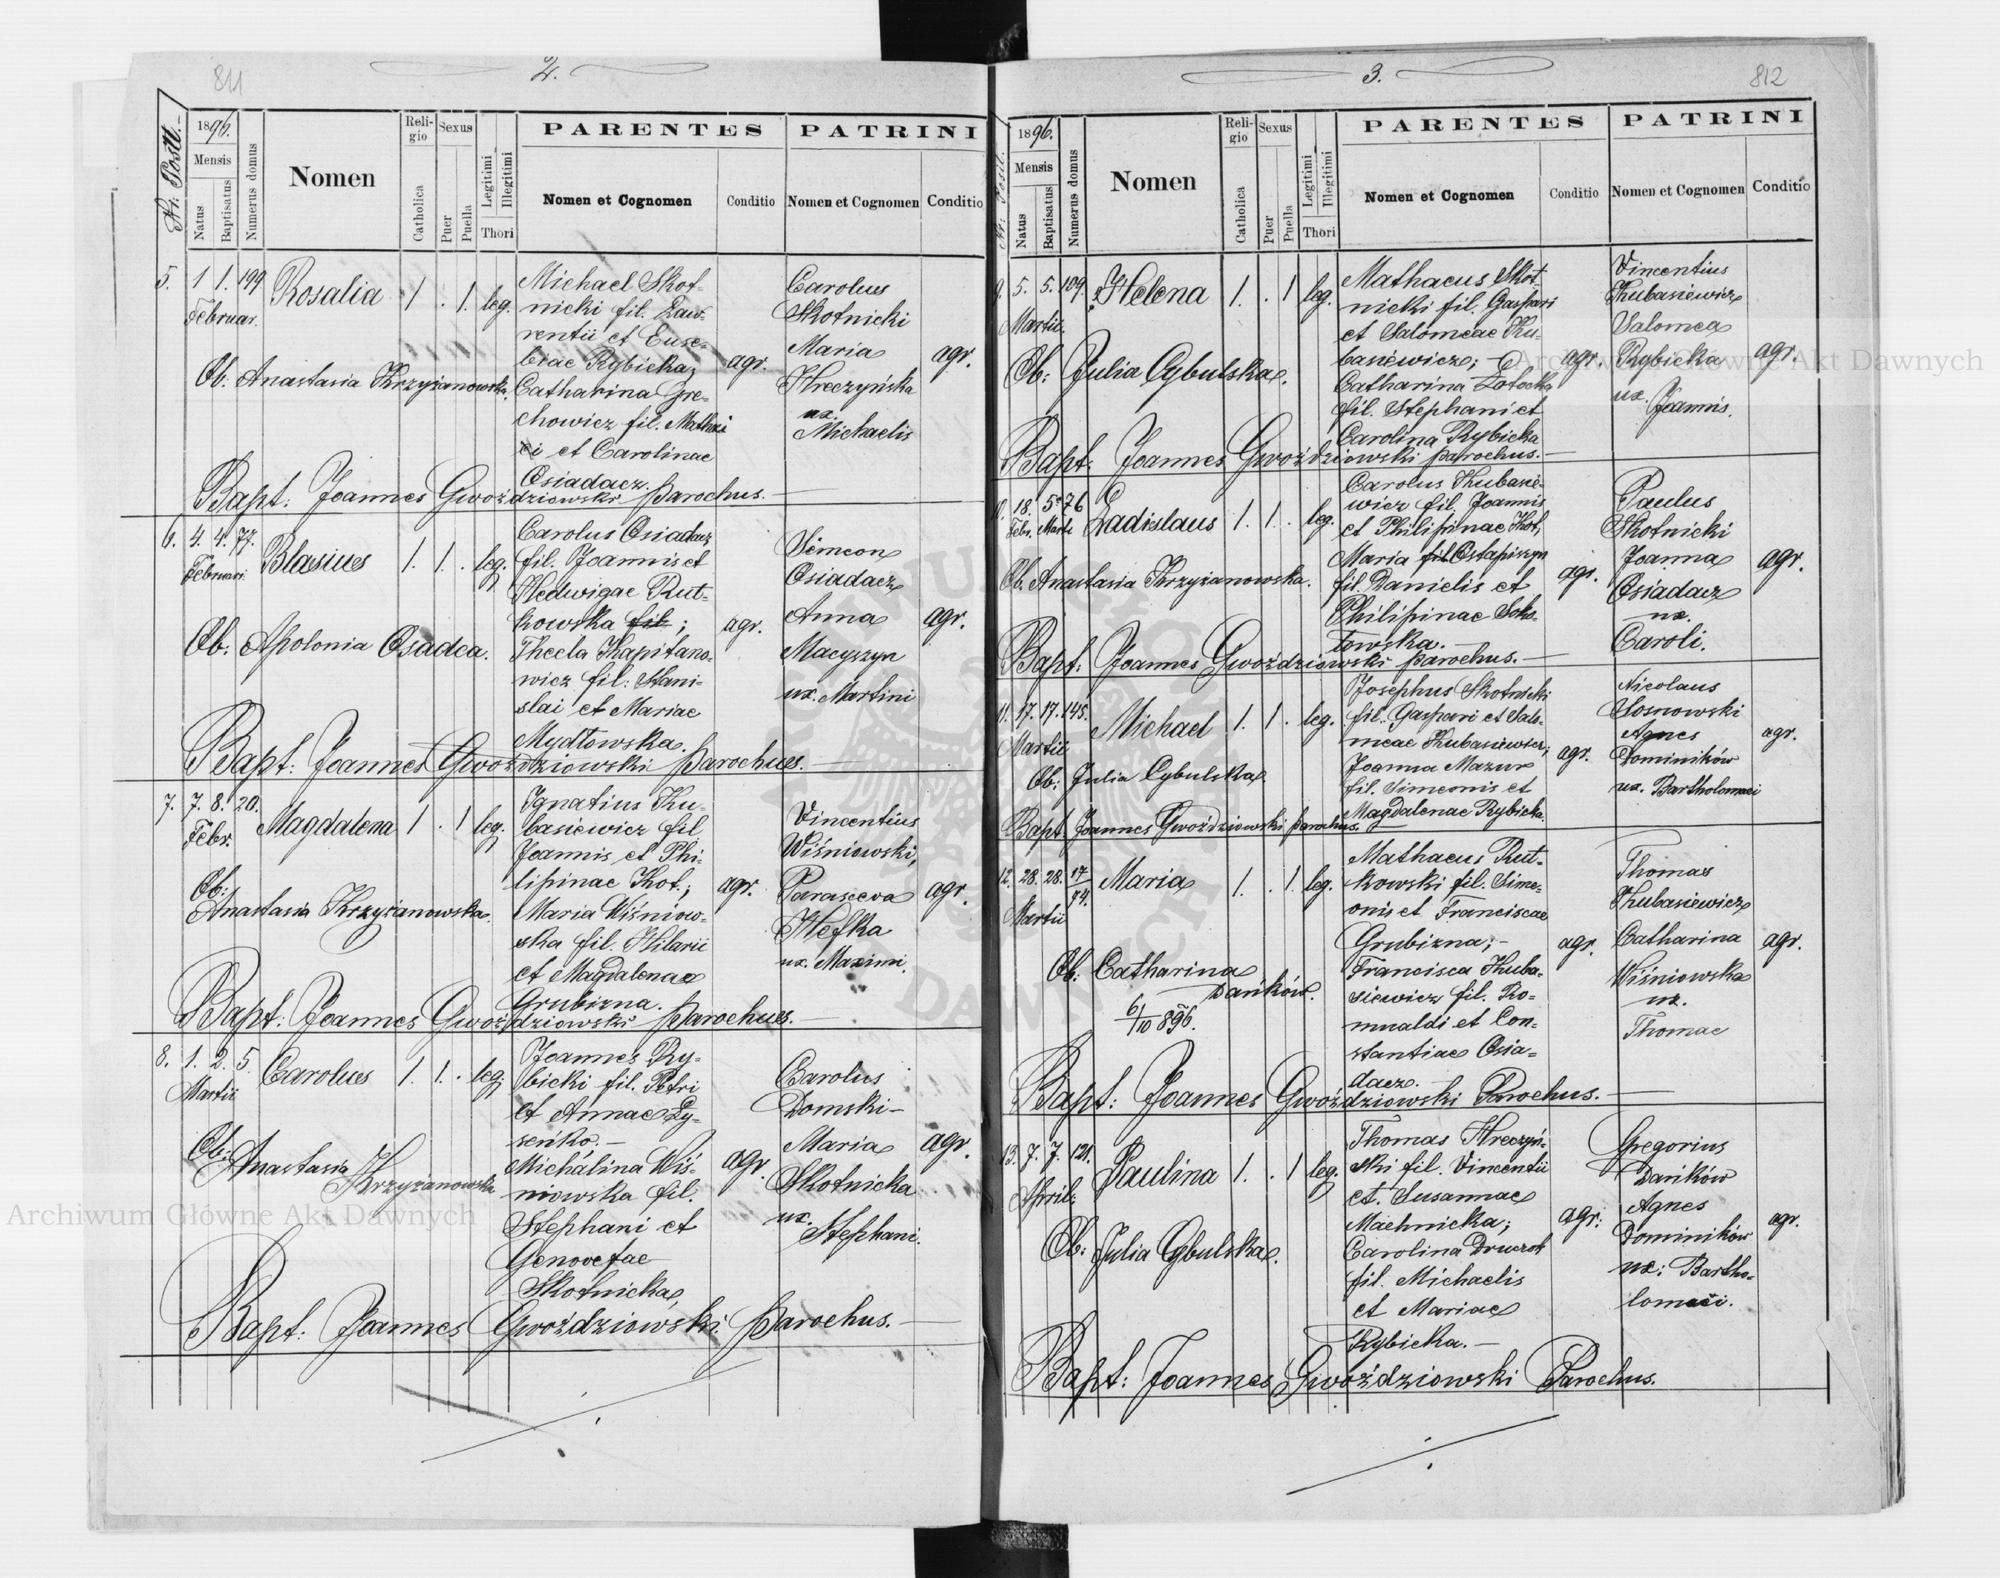 811
2.
Nr. Posit.
1896.
Mensis
Natus
Baptisatus
Numerus domus
Nomen
Religio
Catholica
Sexus
Puer
Puella
Legitimi
Illegitimi
Thori
PARENTES
Nomen et Cognomen
Conditio
PATRINI
Nomen et Cognomen
Conditio
5. 1 1. 199 Rosalia 1 . 1. leg.
Februar.
Ob: Anastasia Krzyżanowska.
Michael Skot-
nicki fil. Law-
rentii et Euse-
biae Rybicka;
Catharina Gre-
chowicz fil. Mathai
ci et Carolinae
Osiadacz.
agr.
Carolus
Skotnicki
Maria
Hreczyńska
ux.
Michaelis
agr.
Bapt: Joannes Gwoździowski parochus.
6. 4. 4. 77. Blasius 1. 1. . leg.
Februari.
Ob. Apolonia Osadca.
Carolus Osiadacz
fil. Joannis et
Hedwigae Rut-
kowska fil ;
Thecla Kapitano-
wicz fil: Stani-
slai et Mariae
Mydłowska.
agr.
Simeon
Osiadacz
Anna
Macyszyn
ux. Martini
agr.
Bapt: Joannes Gwoździowski parochus.
7. 7. 8. 20. Magdalena 1 . 1 leg.
Febr.
Ob:
Anastasia Krzyżanowska.
Ignatius Ku-
basiewicz fil
Joannis et Phi-
lipinae Kot.;
Maria Wiśniow-
ska fil. Hilarii
et Magdalenae
Grubizna.
agr.
Vincentius
Wiśniowski,
Parasceva
Hefka
ux. Maximi.
agr.
Bapt: Joannes Gwoździowski parochus.
8. 1. 2. 5. Carolus 1. 1. . leg.
Martii
Ob: Anastasia
Krzyżanowska
Joannes Ry-
bicki fil. Petri
et Annae Ły-
seńko. -
Michalina Wiś-
niowska fil.
Stephani et
Genovefae
Skotnicka,
agr.
Carolus
Domski -
Maria
Skotnicka
ux.
Stephani.
agr.
Bapt: Joannes Gwoździowski parochus.
812
3.
Nr. Posit.
1896.
Mensis
Natus
Baptisatus
Numerus domus
Nomen
Religio
Catholica
Sexus
Puer
Puella
Legitimi
Illegitimi
Thori
PARENTES
Nomen et Cognomen
Conditio
PATRINI
Nomen et Cognomen
Conditio
9. 5. 5. 109. Helena 1. . 1 leg.
Martii.
Ob: Julia Cybulska.
Mathaeus Skot
nicki fil. Gaspari
et Salomeae Ku-
basiewicz; -
Catharina Łotocka
fil. Stephani et
Carolina Rybicka
agr.
Vincentius
Kubasiewicz
Salomea
Rybicka
ux. Joannis.
agr.
Bapt: Joannes Gwoździowski parochus.
10. 18. 5. 76 Ladislaus 1. 1. . leg.
Febr. Martii
Ob. Anastasia Krzyżanowska.
Carolus Kubasie-
wicz fil. Joannis
et Philipinae Kot,
Maria fil Ostapiszyn
fil. Danielis et
Philipinae Soko-
łowska.
agr.
Paulus
Skotnicki
Joanna
Osiadacz
ux.
Caroli.
agr.
Bapt: Joannes Gwoździowski parochus.
11. 17. 17. 145. Michael 1. 1 . leg.
Martii
Ob: Julia Cybulska.
Josephus Skotnicki
fil. Gaspari et Salo-
meae Kubasiewicz;
Joanna Mazur
fil. Simeonis et
Magdalenae Rybicka.
agr.
Nicolaus
Sosnowski
Agnes
Dominików
ux. Bartholomaei
agr.
Bapt: Joannes Gwoździowski parochus.
12. 28. 28. 17/74. Maria 1. . 1. leg.
Martii
Ob: Catharina
Dańków.
6/10 896.
Mathaeus Rut-
kowski fil. Sime-
onis et Franciscae
Grubizna; -
Francisca Kuba-
siewicz fil. Ro-
mualdi et Con-
stantiae Osia-
dacz.
agr.
Thomas
Kubasiewicz
Catharina
Wiśniowska
ux.
Thomae
agr.
Bapt: Joannes Gwoździowski Parochus.
13. 7. 7. 121. Paulina 1. . 1 leg.
April.
Ob: Julia Cybulska.
Thomas Hreczyń-
ski fil. Vincentii
et. Susannae
Machnicka;
Carolina Druczok
fil. Michaelis
et Mariae
Rybicka. -
agr.
Gregorius
Dańków
Agnes
Dominików
ux: Bartho-
lomaei.
agr.
Bapt: Joannes Gwoździowski Parochus.
Archiwum Główne Akt Dawnych
Archiwum Główne Akt Dawnych